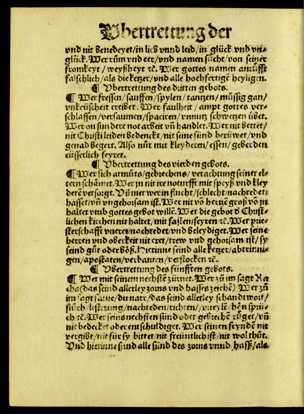 Vbertrettung der
vnd nit Benedeyet/in lieb vnnd leid/in glück vnd vn=
glück. Wer rům vnd ere/vnd namen sůcht/von seiner
fromkeyt/weyßheyt ꝛc. Wer gottes namen anrüfft
falschlich/als die ketzer/vnd alle hochfertige heyligen.
¶ Vbertrettung des dritten gebots.
¶ Wer fressen/sauffen/spylen/tantzen/müssig gan/
vnkeüscheit treibet. Wer faulheit/ampt gottes ver=
schlaffen/versaumen/spacieren/vnnutz schwetzen übet.
Wer on sunder not arbeit vnd handlet. Wer nit bettet/
nit Christi leiden bedenckt/nit seine sünd berüwet/vnd
genad begert. Also nur mit kleydern/essen/geberden
eüsserlich feyret.
¶ Vbertrettung des vierden gebots.
¶ Wer sich armůts/gebrechens/verachtung seiner el=
tern schämet. Wer jn nit ire notturfft mit speyß vnd kley
dern versorget. Vil mer wer in flůcht/schlecht/nachredet
hasset/vñ vngehorsam ist. Wer nit võ hertzē groß võ jn
haltet vmb gottes gebot willē. Wer die gebot der Christ=
lichen kirchen nit haltet/mit fasten feyren ꝛc. Wer prie=
sterschafft vneret/nachredet/vnd beleydiget. Wer seinen
herren vnd oberkeit nit eret/trew vnd gehorsam ist/sy
seind gůt oder böß. Hierinne seind alle ketzer/abtrinni=
gen/apostaten/verbanten/verstockten ꝛc.
¶ Vbertrettung des fünfften gebots.
¶ Wer mit seinem nechstē zürnet. Wer zů im sagt Ra
cha/das seind allerley zorns vnd hasses zeichē Wer zů
im sagt fatue/du narr/das seind allerley schandwort/
flůch/lesterung/nachreden/richten/vrteylē
ꝛc. Wer seins nechsten sünd oder gebrechē vñ
nit bedecket oder entschuldiget. Wer seinen feynden nit
vergibt/nit für sy bittet nit freüntlich ist/nit wol thůt.
Vnd hierinne sind alle sünd des zorns vnnd haß/als